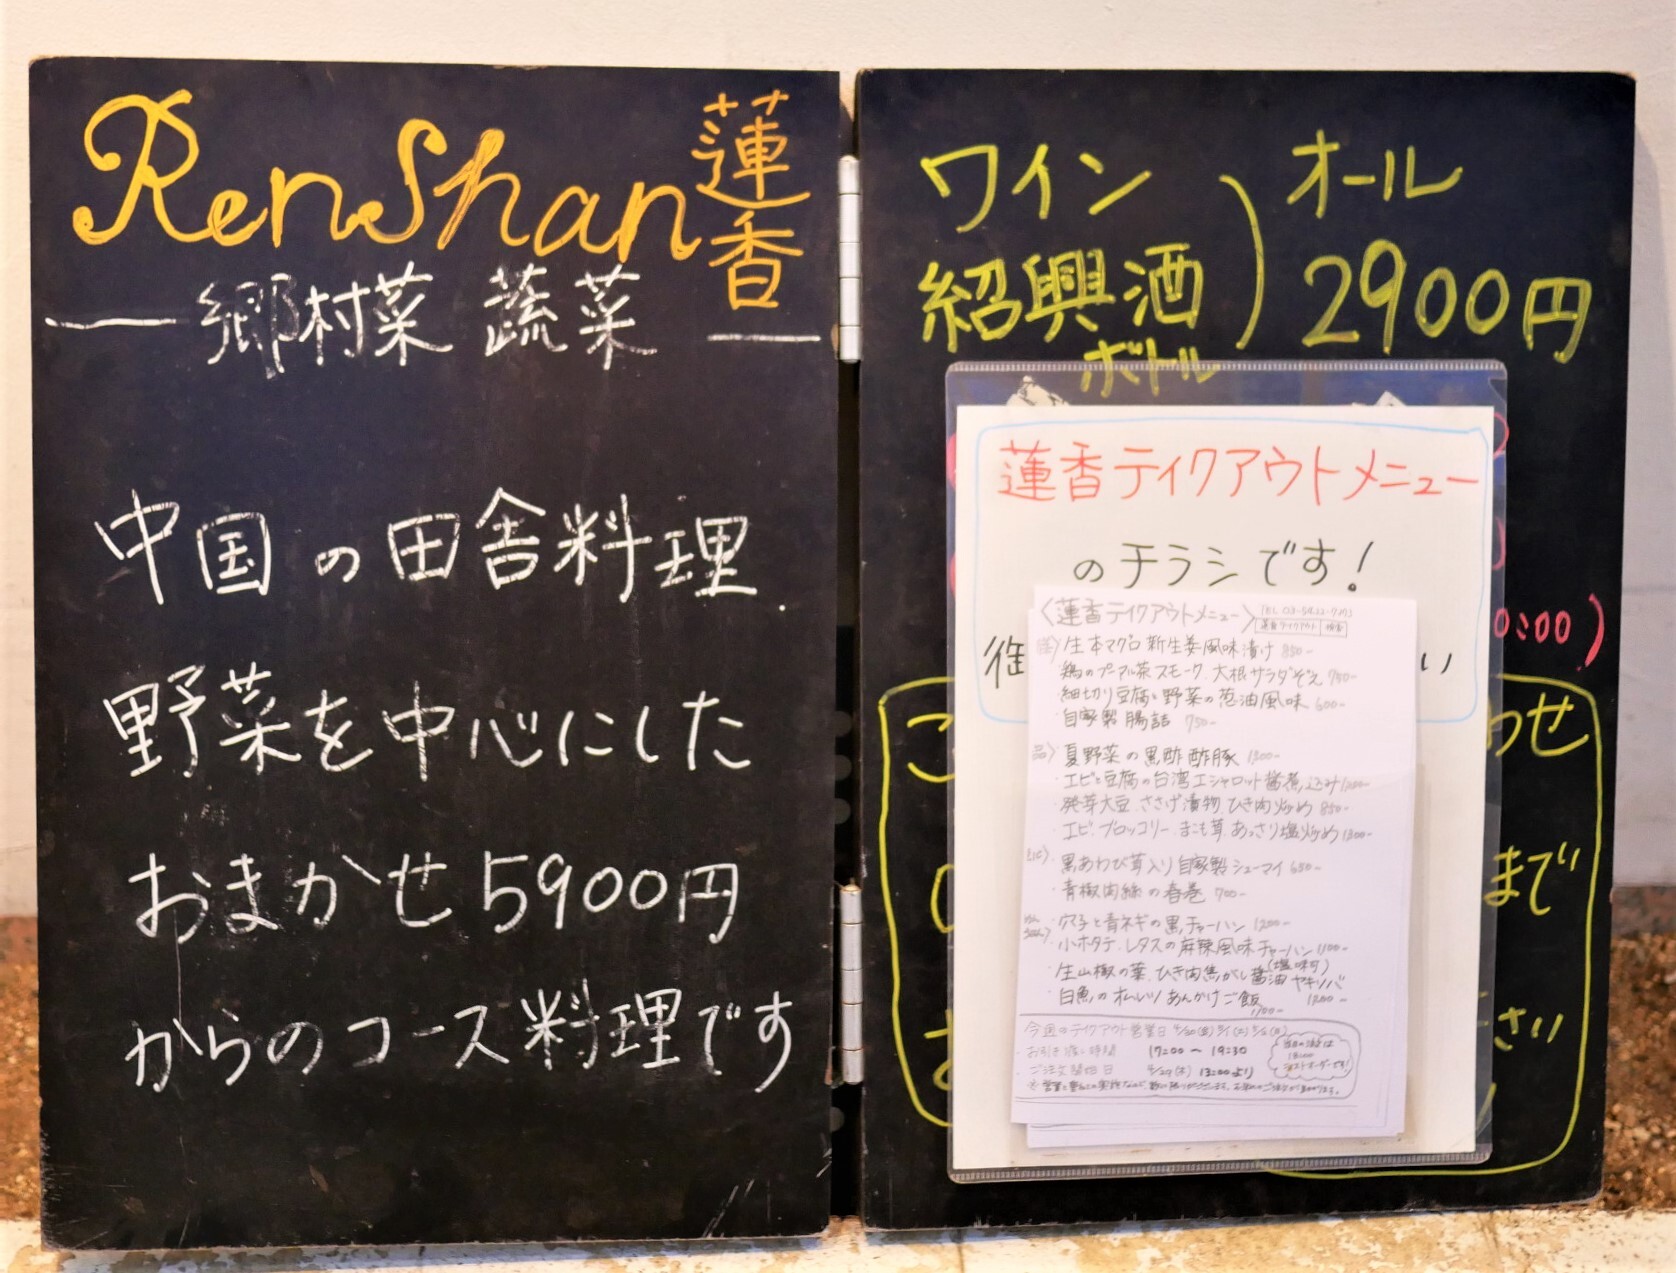 RenShan 蓮香
郷村菜 蔬菜
中国の田舎料理
野菜を中心にした
おまかせ5900円
からのコース料理です
ワイン
紹興酒
ボトル
オール
2900円
蓮香テイクアウトメニュー
のチラシです!
い
0:00)
こ
わせ
まで
さい
〈蓮香テイクアウトメニュー〉
蓮香テイクアウト 検索
生本マグロ新生姜風味漬け 850-
鶏のプーアル茶スモーク、大根サラダぞえ 750-
細切り豆腐と野菜の葱油風味 600-
自家製腸詰 750-
夏野菜の黒酢酢豚 1300-
・エビと豆腐の台湾エシャロット醤煮込み
・発芽大豆、ささげ漬物、ひき肉炒め 850-
・エビ、ブロッコリー、まこも茸、あっさり塩炒め 1300-
黒あわび茸入り自家製シューマイ 650-
・青椒肉絲の春巻 700-
・穴子と青ネギの黒チャーハン 1200-
・小ホタテ、レタスの麻辣風味チャーハン 1100-
・生山椒の葉、ひき肉焦がし醤油ヤキソバ
(塩味可)
・白魚のオムレツあんかけご飯
今週のテイクアウト営業日
・お引き渡し時間 17:00〜19:30
・ご注文開始日 13:00より